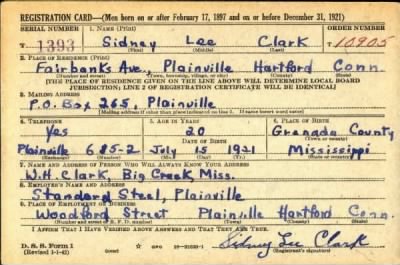 REGISTRATION CARD—(Men born on or after February 17, 1897 and on or before December 31, 1921)
SERIAL NUMBER 1. NAME (Print) ORDER NUMBER
T 1393 Sidney Lee Clark T 10905
(First) (Middle) (Last)
2. PLACE OF RESIDENCE (Print)
Fairbanks Ave., Plainville Hartford Conn
(Number and street) (Town, township, village, or city) (County) (State)
[THE PLACE OF RESIDENCE GIVEN ON THE LINE ABOVE WILL DETERMINE LOCAL BOARD
JURISDICTION; LINE 2 OF REGISTRATION CERTIFICATE WILL BE IDENTICAL]
3. MAILING ADDRESS
P.O. Box 265, Plainville
4. TELEPHONE 5. AGE IN YEARS 6. PLACE OF BIRTH
Yes 20 Grenada County
DATE OF BIRTH (Town or county)
Plainville 685-2 July 15 1921 Mississippi
(Exchange) (Number) (Mo.) (Day) (Yr.) (State or country)
7. NAME AND ADDRESS OF PERSON WHO WILL ALWAYS KNOW YOUR ADDRESS
W.H. Clark, Big Creek, Miss.
8. EMPLOYER'S NAME AND ADDRESS
Standard Steel, Plainville
9. PLACE OF EMPLOYMENT OR BUSINESS
Woodford Street Plainville Hartford Conn.
(Number and street or R. F. D. number) (Town) (County) (State)
I AFFIRM THAT I HAVE VERIFIED ABOVE ANSWERS AND THAT THEY ARE TRUE.
D. S. S. Form 1
(Revised 1-1-42) (over) GPO Sidney Lee Clark
(Registrant's signature)